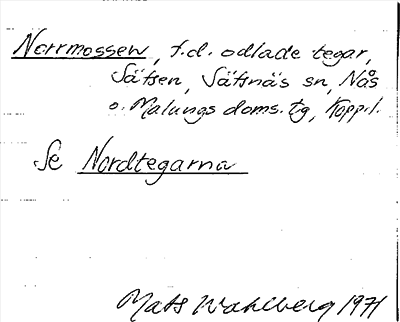 Norrmossen, f.d. odlade tegar,
Säfsen, Säfsnäs sn, Nås
o. Malungs doms. tg, Koppl.
Se Nordtegarna
Mats Wahlberg 1971